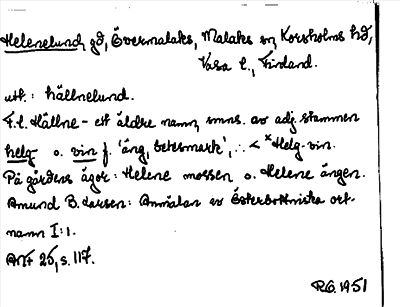 Helenelund gd, Övermalaks, Malaks sn, Korsholms hd,
Vasa l., Finland.
utt.: hällnelund.
F.l. Hällne- ett äldre namn, smns. av adj. stammen
helg o. vin f. 'äng, betesmark', ∴ < ˣHelg-vin.
På gårdens ägor: Helene mossen o. Helene ängen.
Amund B. Larsen: Anmälan av Österbottniska ort-
namn I:1.
ANF 25, s. 117.
RO. 1951